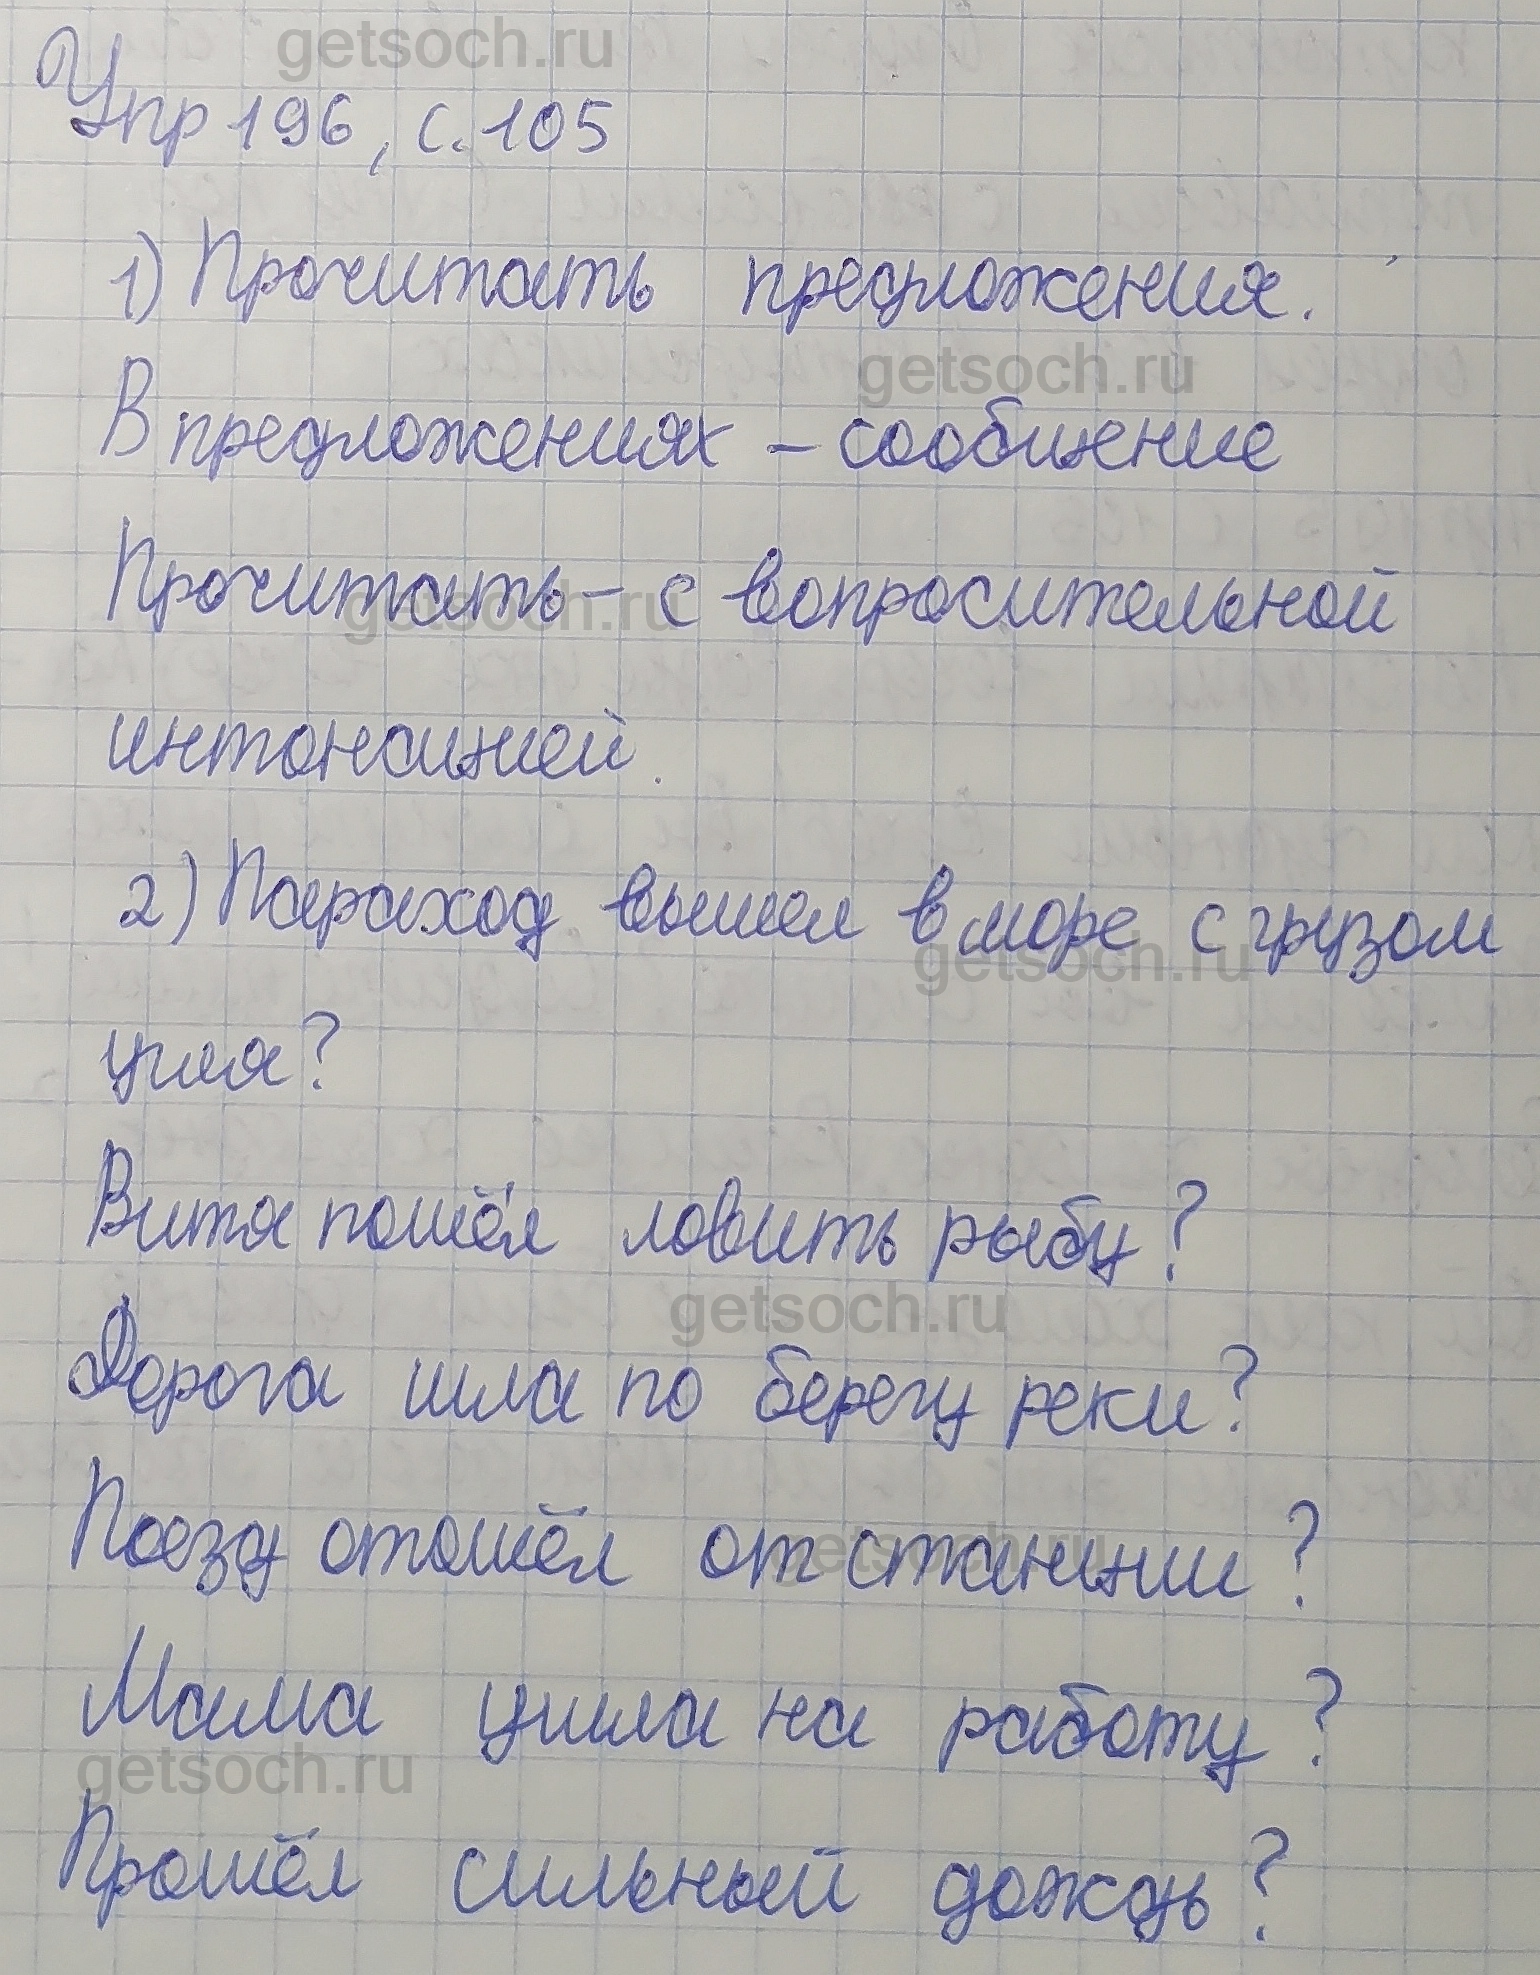 getsoch.ru
Упр 196, с. 105
1) Прочитать предложения.
getsoch.ru
В предложениях – сообщение
Прочитать – с вопросительной
getsoch.ru
интонацией.
2) Параход вышел в море с грузом
getsoch.ru
угля?
Витя пошёл ловить рыбу?
getsoch.ru
Дорога шла по берегу реки?
Поезд отошёл от станции?
getsoch.ru
Мама ушла на работу?
getsoch.ru
Прошёл сильный дождь?